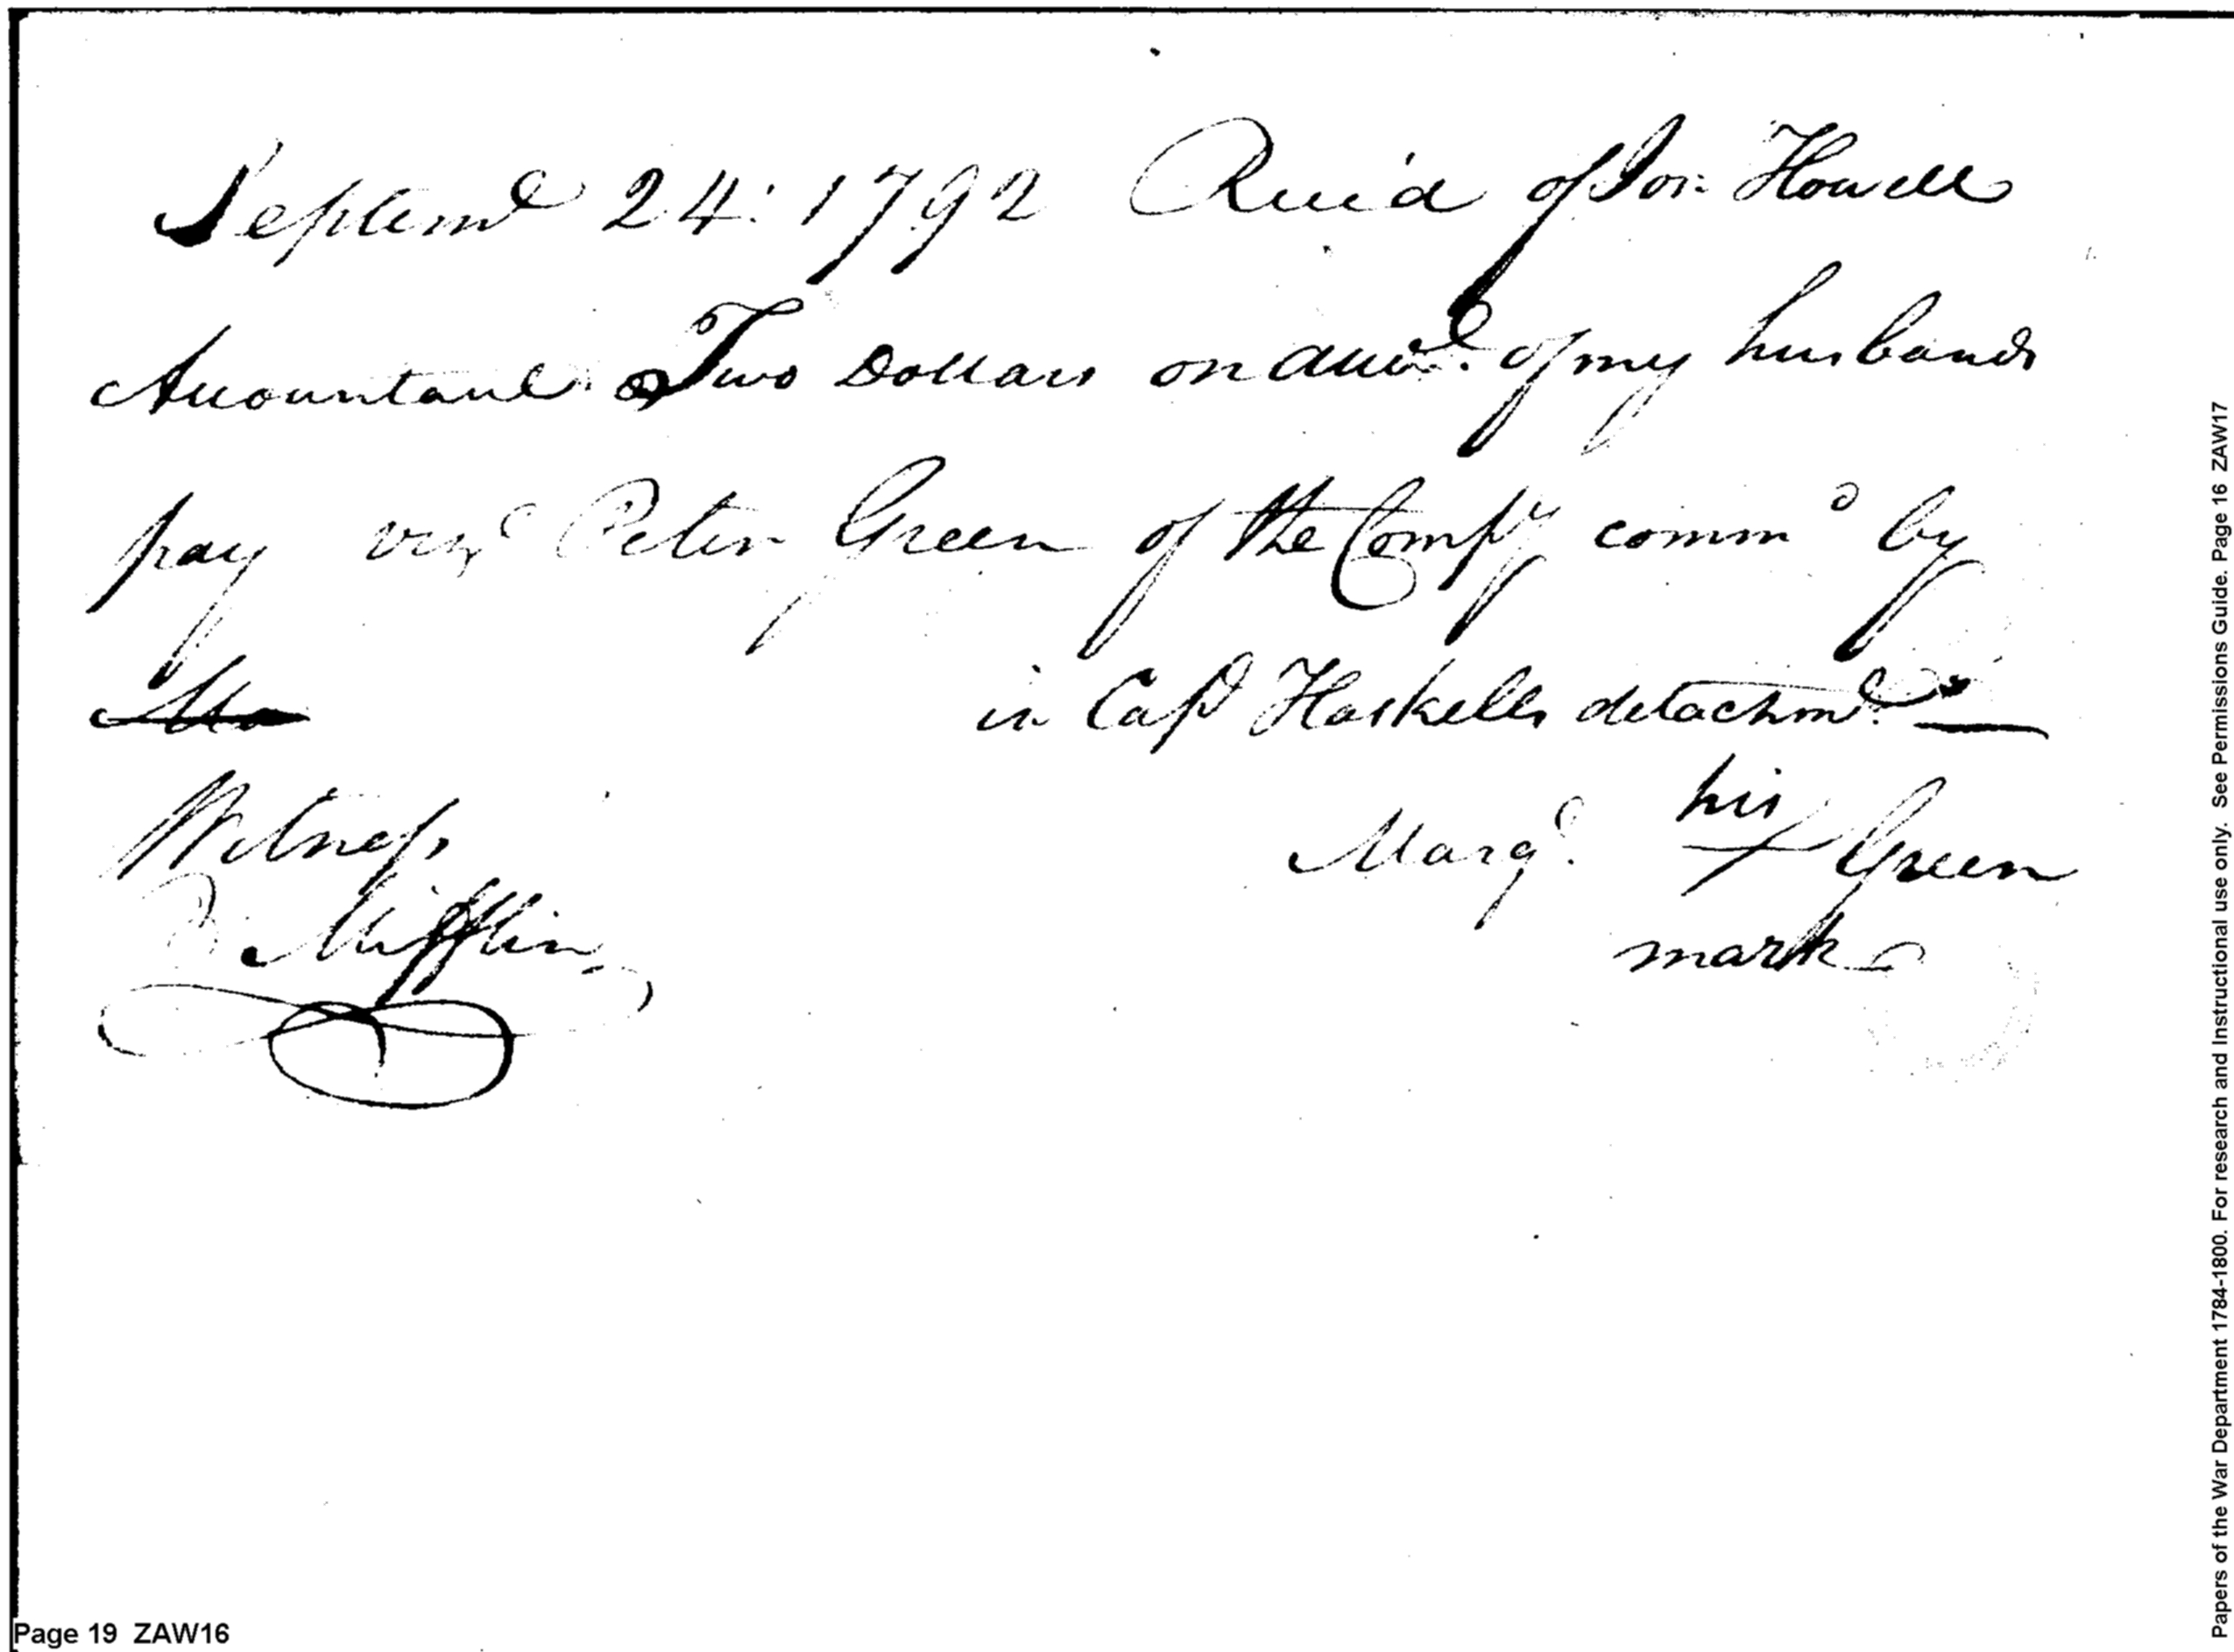 Septemr 24: 1792 Recd of Jos: Howell
Accountant Two Dollars on acct. of my husbands
pay vizt Peter Green of the Compy commd by
in Capt Haskells detachmt.
his
Witness Margt. + Green
Mifflin mark
Page 19 ZAW16
Papers of the War Department 1784-1800. For research and Instructional use only. See Permissions Guide. Page 16 ZAW17